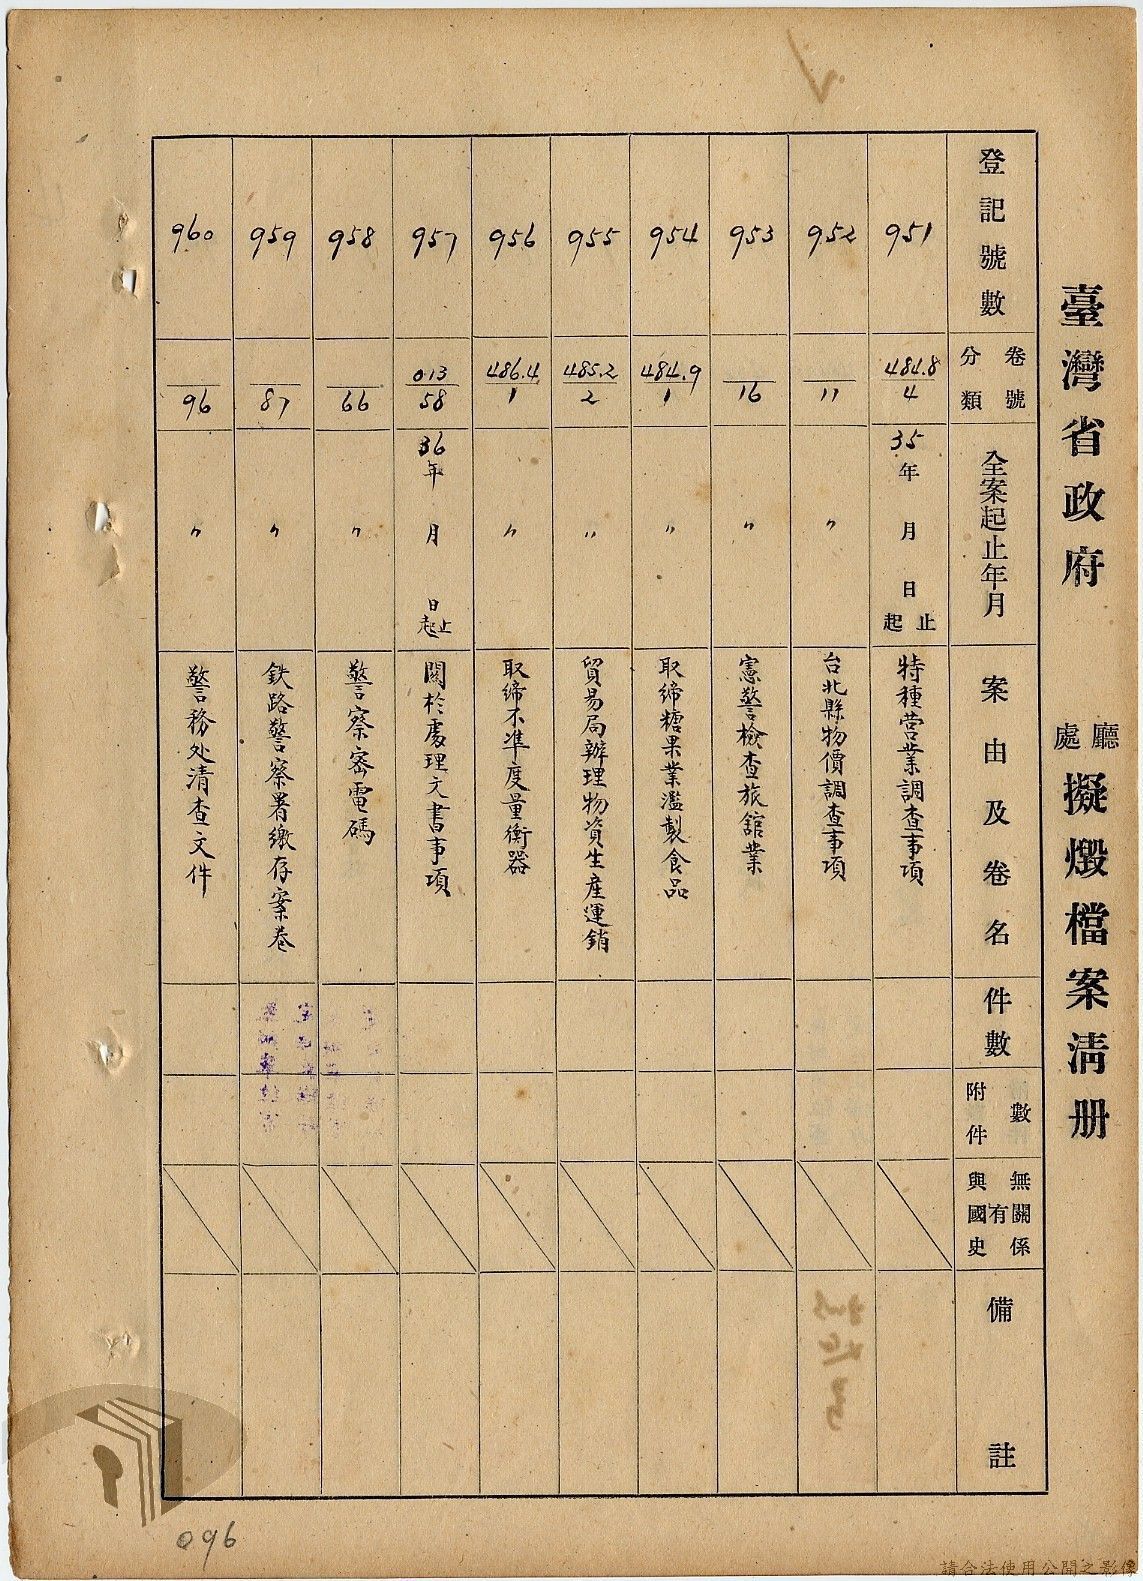 臺灣省政府 廳處 擬燬檔案清册
登記號數 分類卷號 全案起止年月 案由及卷名 件數 附件數 與國史有無關係 備註
951 484.8/4 35年 月 日起止 特種营業調查事項
952 11 〃 台北縣物價調查事項
953 16 〃 憲警檢查旅舘業
954 484.9/1 〃 取締糖果業濫製食品
955 485.2/2 〃 貿易局辦理物資生產運銷
956 486.4/1 〃 取締不準度量衡器
957 013/58 36年 月 日起止 關於處理文書事項
958 66 〃 警察密電碼
959 87 〃 鉄路警察署繳存案卷
960 96 〃 警務处清查文件
096
請合法使用公開之影像